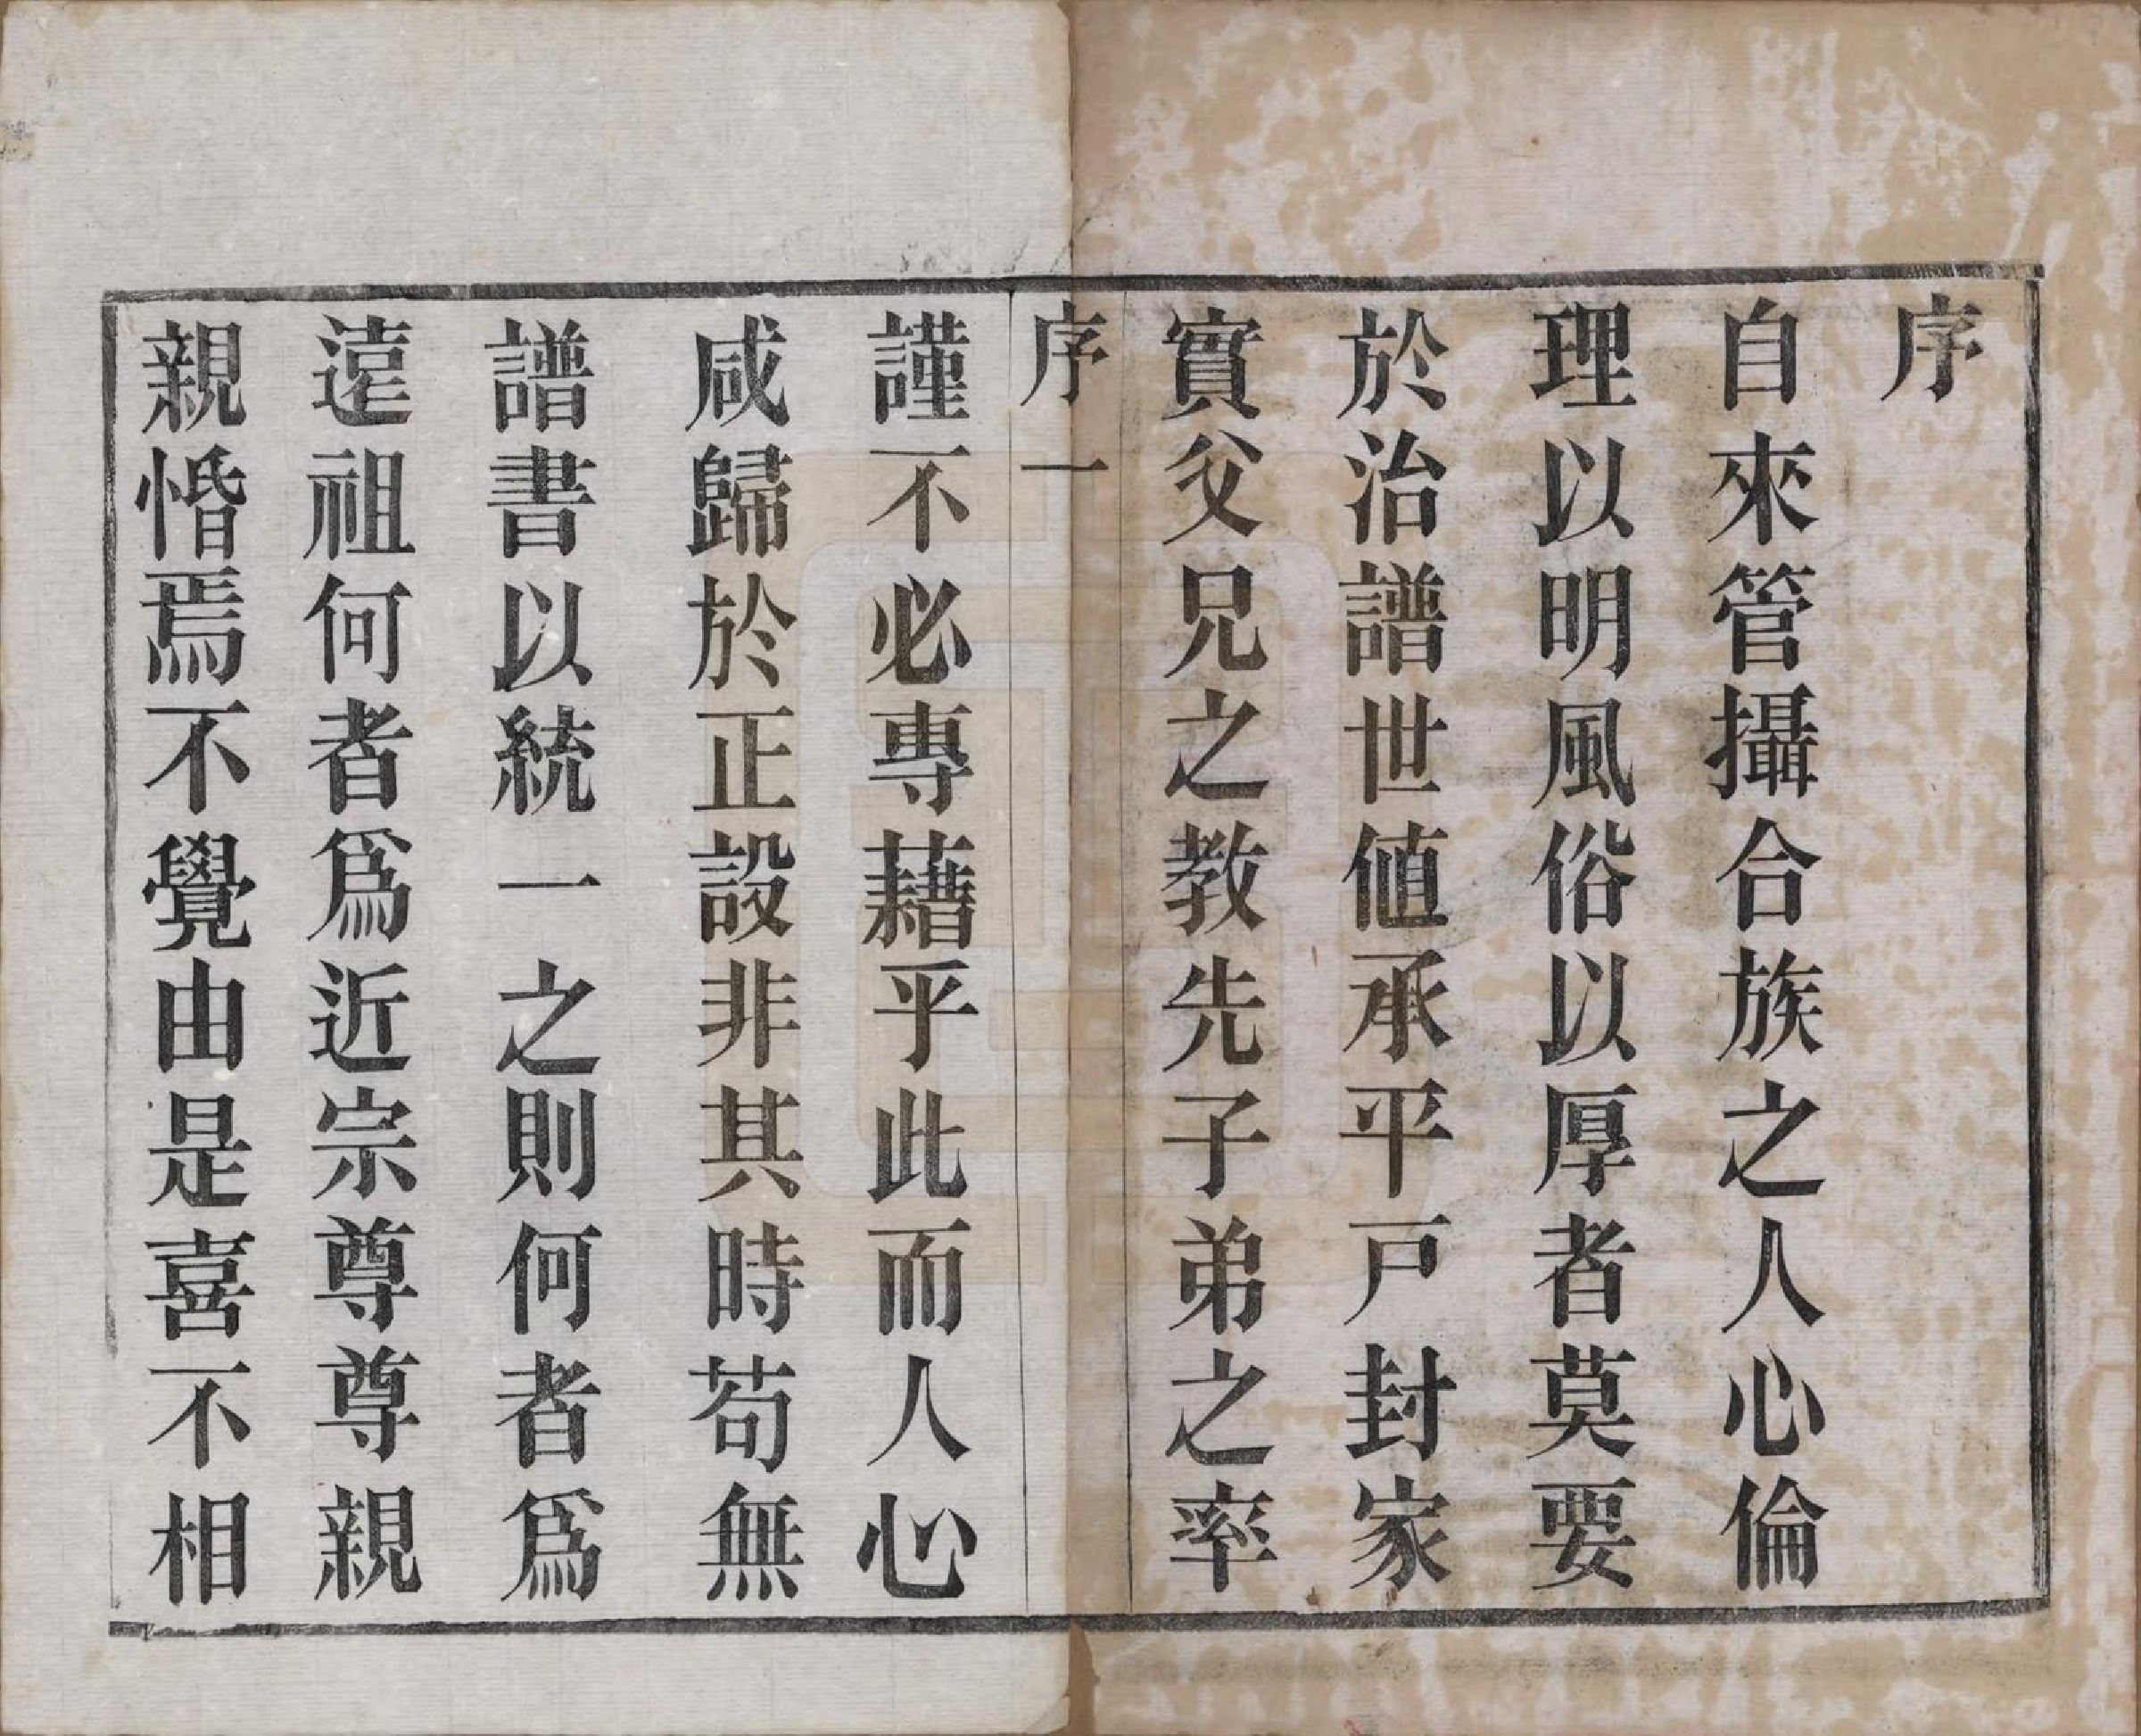 序
自來管攝合族之人心倫
理以明風俗以厚者莫要
於治譜世値承平戸封家
實父兄之教先子弟之率
序一
謹不必專藉乎此而人心
咸歸於正設非其時苟無
譜書以統一之則何者爲
遠祖何者爲近宗尊尊親
親惛焉不覺由是喜不相